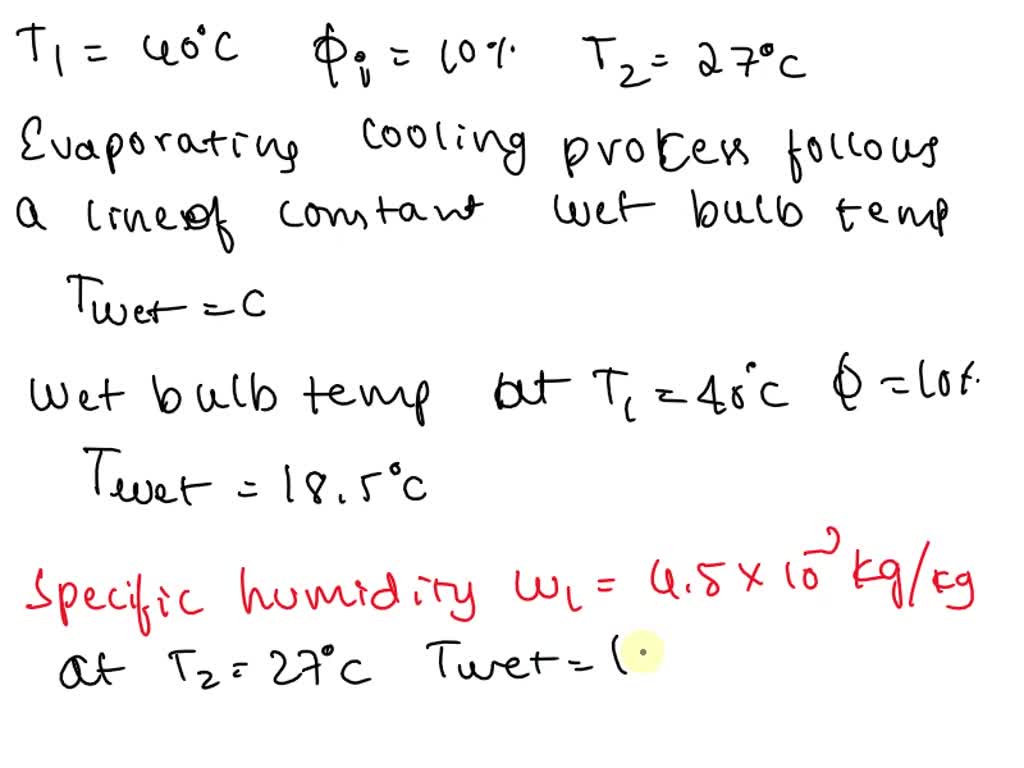 T₁ = 40°C ϕᵢ = 10% T₂ = 27°C
Evaporating cooling process follows
a line of constant wet bulb temp
Twet = C
Wet bulb temp at T₁ = 40°C ϕ = 10%
Twet = 18.5°C
Specific humidity ω₁ = 4.5 × 10⁻³ kg/kg
at T₂ = 27°C Twet = 1